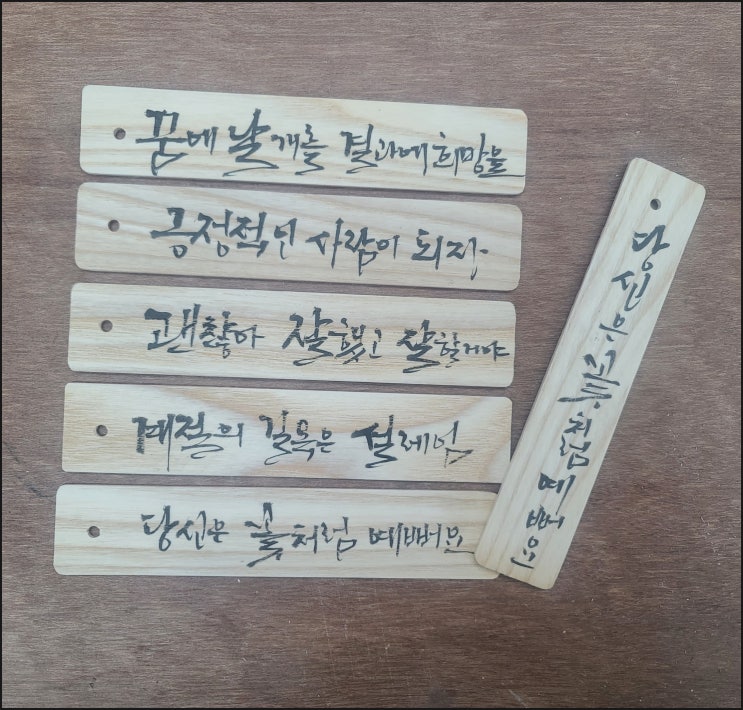 꿈에 날개를 결과에 희망을
긍정적인 사람이 되자
괜찮아 잘했고 잘할거야
계절의 길목은 설레임
당신은 꽃처럼 예뻐요
당신은 꽃처럼 예뻐요